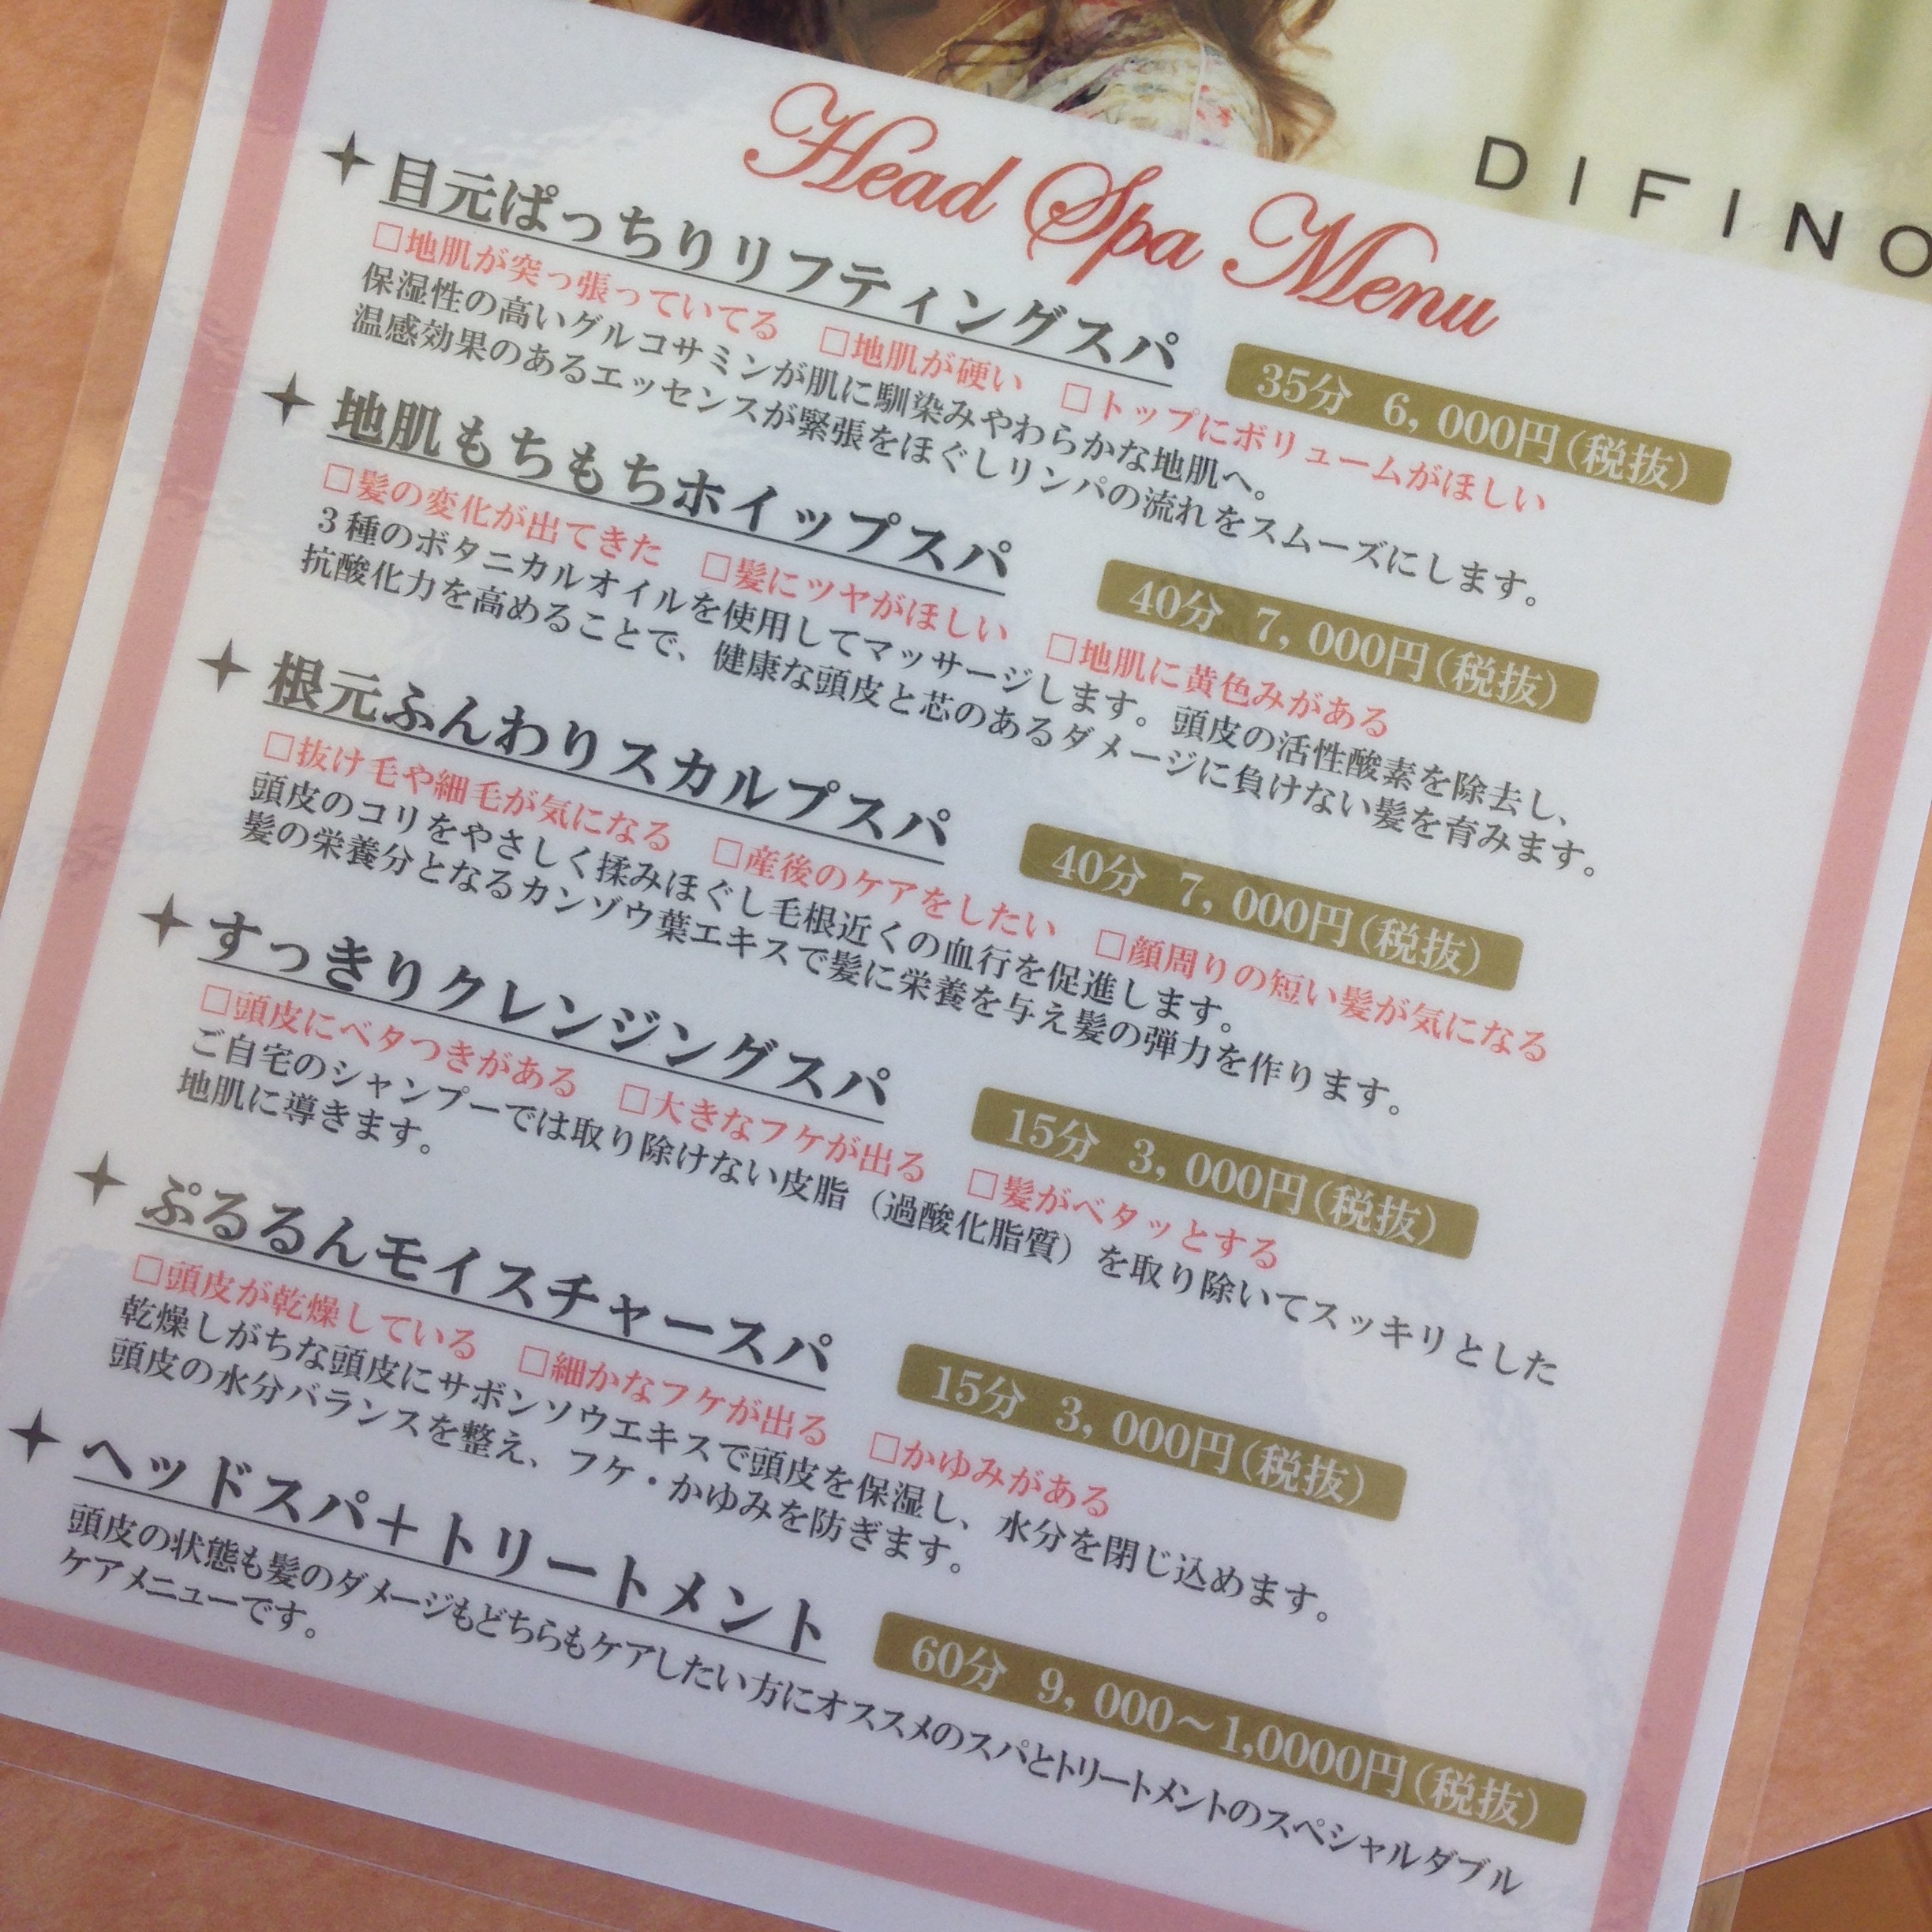 DIFINO
Head Spa Menu
目元ぱっちりリフティングスパ 35分 6,000円(税抜)
□地肌が突っ張っていてる □地肌が硬い □トップにボリュームがほしい
保湿性の高いグルコサミンが肌に馴染みやわらかな地肌へ。
温感効果のあるエッセンスが緊張をほぐしリンパの流れをスムーズにします。
地肌もちもちホイップスパ 40分 7,000円(税抜)
□髪の変化が出てきた □髪にツヤがほしい □地肌に黄色みがある
3種のボタニカルオイルを使用してマッサージします。頭皮の活性酸素を除去し、
抗酸化力を高めることで、健康な頭皮と芯のあるダメージに負けない髪を育みます。
根元ふんわりスカルプスパ 40分 7,000円(税抜)
□抜け毛や細毛が気になる □産後のケアをしたい □顔周りの短い髪が気になる
頭皮のコリをやさしく揉みほぐし毛根近くの血行を促進します。
髪の栄養分となるカンゾウ葉エキスで髪に栄養を与え髪の弾力を作ります。
すっきりクレンジングスパ 15分 3,000円(税抜)
□頭皮にベタつきがある □大きなフケが出る □髪がベタッとする
ご自宅のシャンプーでは取り除けない皮脂(過酸化脂質)を取り除いてスッキリとした
地肌に導きます。
ぷるるんモイスチャースパ 15分 3,000円(税抜)
□頭皮が乾燥している □細かなフケが出る □かゆみがある
乾燥しがちな頭皮にサボンソウエキスで頭皮を保湿し、水分を閉じ込めます。
頭皮の水分バランスを整え、フケ・かゆみを防ぎます。
ヘッドスパ+トリートメント 60分 9,000~1,0000円(税抜)
頭皮の状態も髪のダメージもどちらもケアしたい方にオススメのスパとトリートメントのスペシャルダブル
ケアメニューです。